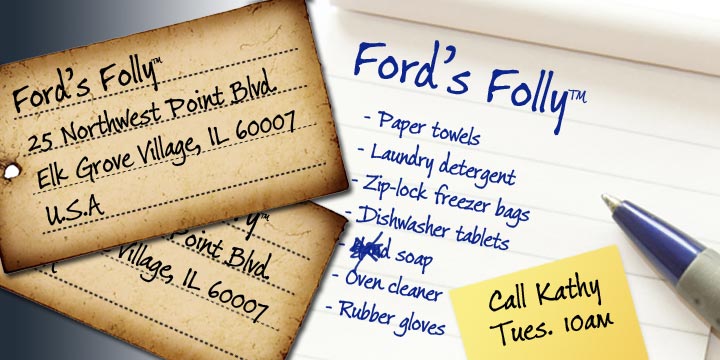 Ford's Folly™
25 Northwest Point Blvd.
Elk Grove Village, IL 60007
U.S.A
Point Blvd.
Village, IL 60007
Ford's Folly™
- Paper towels
- Laundry detergent
- Zip-lock freezer bags
- Dishwasher tablets
- soap
- Oven cleaner
- Rubber gloves
Call Kathy
Tues. 10am